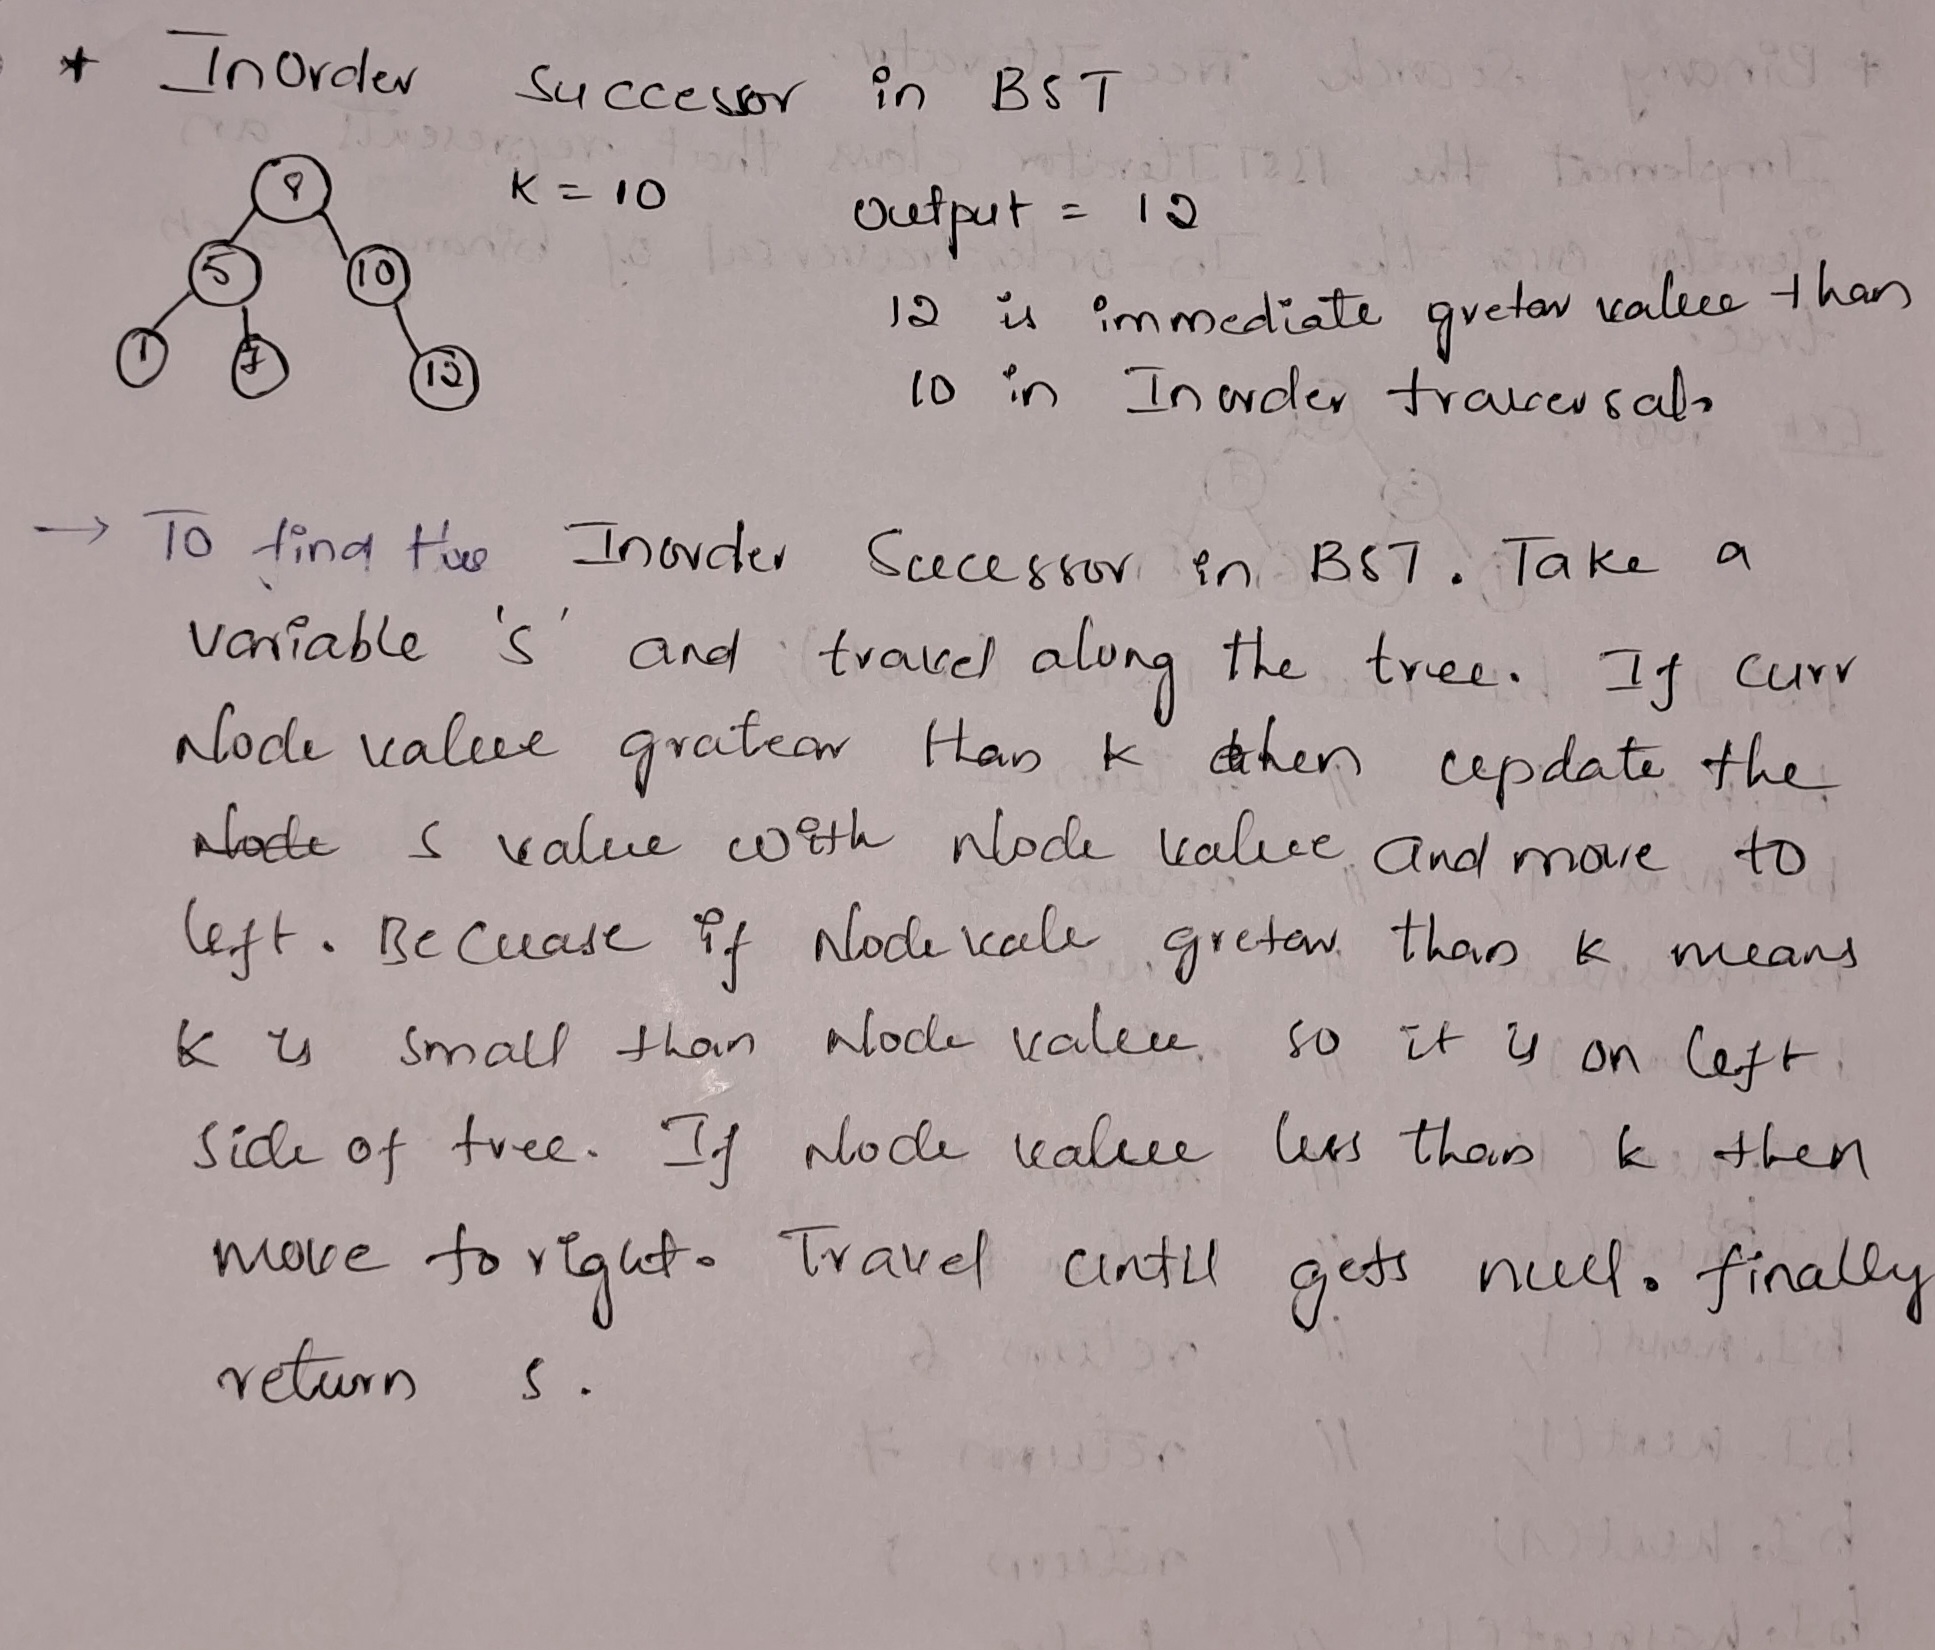 * InOrder Successor in BST
8
K = 10
Output = 12
5 10
12 is immediate gretar value than
1 7 12
10 in Inorder traversal.
→ To find the Inorder SuccesSor in BST. Take a
variable 's' and travel along the tree. If curr
Node value gratear than k then update the
Node s value with Node value and move to
left. Becuase if Node vale gretar than k means
k is small than Node value so it is on left
side of tree. If Node value less than k then
move to right. Travel until gets null. finally
return s.